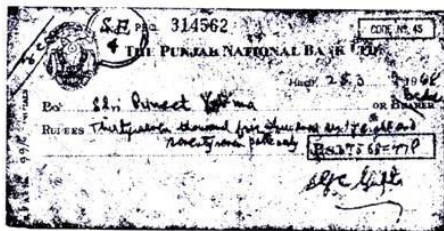 S.E. PRO 314562 CODE No. 45
4
THE PUNJAB NATIONAL BANK LTD.
28.3 1968
PAY Shri Puneet Verma OR BEARER
RUPEES Thirtyseven thousand five hundred sixty eight and
seventyseven paise only
Rs 37568=77P